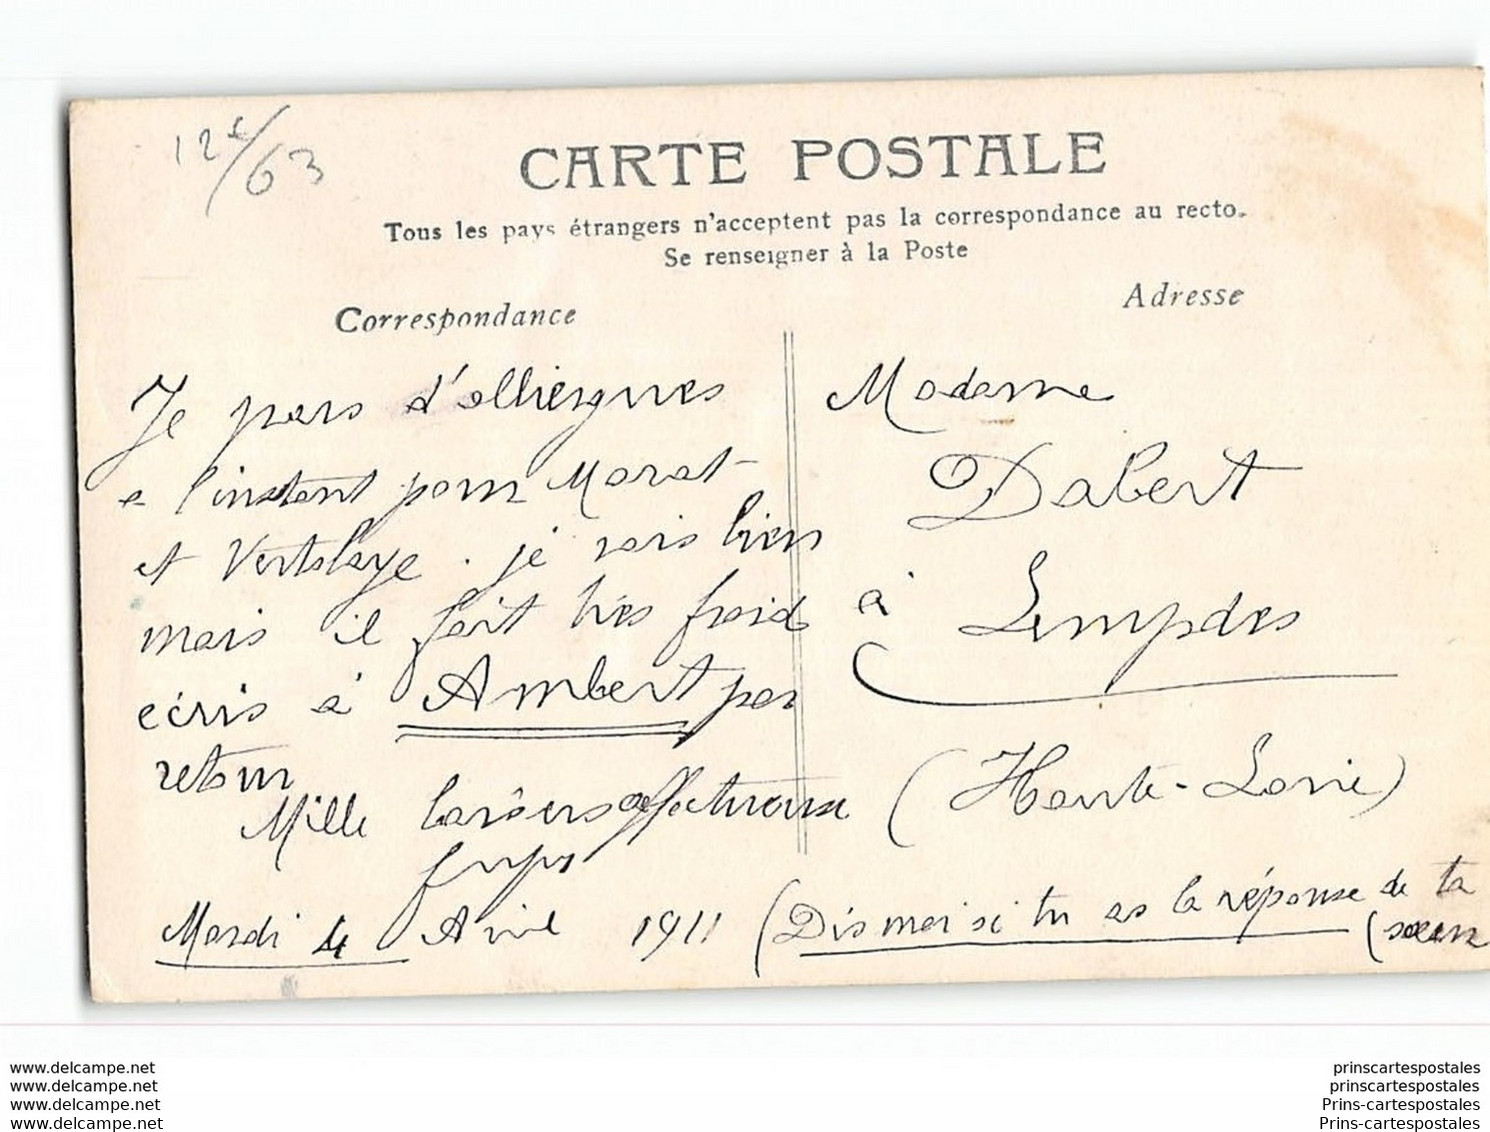 12€/63
CARTE POSTALE
Tous les pays étrangers n'acceptent pas la correspondance au recto.
Se renseigner à la Poste
Correspondance
Adresse
Je pars d'olliergues
a l'instant pour Marat
et Vertolaye. je vais bien
mais il fait très froid
écris à Ambert par
retour
Mille baisers affectueux
Mardi 4 Avril 1911
Madame
Dabert
à Lempdes
(Haute-Loire)
(Dis moi si tu as la réponse de ta
(sœur
www.delcampe.net
www.delcampe.net
www.delcampe.net
www.delcampe.net
prinscartespostales
prinscartespostales
Prins-cartespostales
Prins-cartespostales